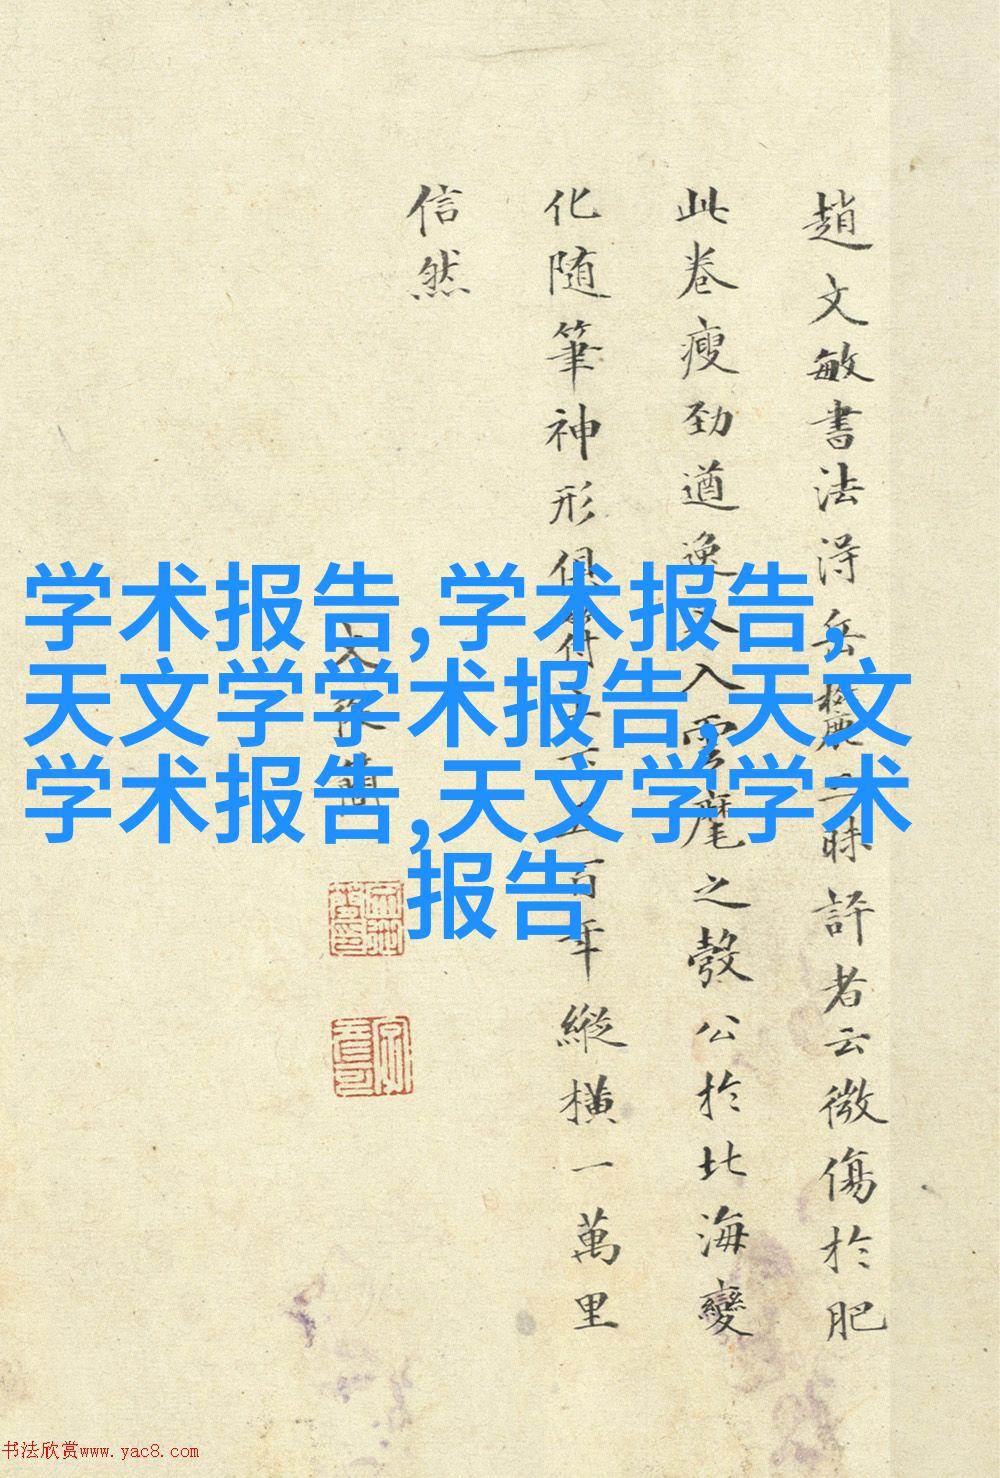 趙文敏書法淂岳麓三昧評者云微傷於肥
此卷瘦勁遒逸入雲麾之彀公於北海變
化随筆神形俱上下五百年縱横一萬里
信然
文休
学术报告,学术报告,
天文学学术报告,天文
学术报告,天文学学术
报告
书法欣赏www.yac8.com